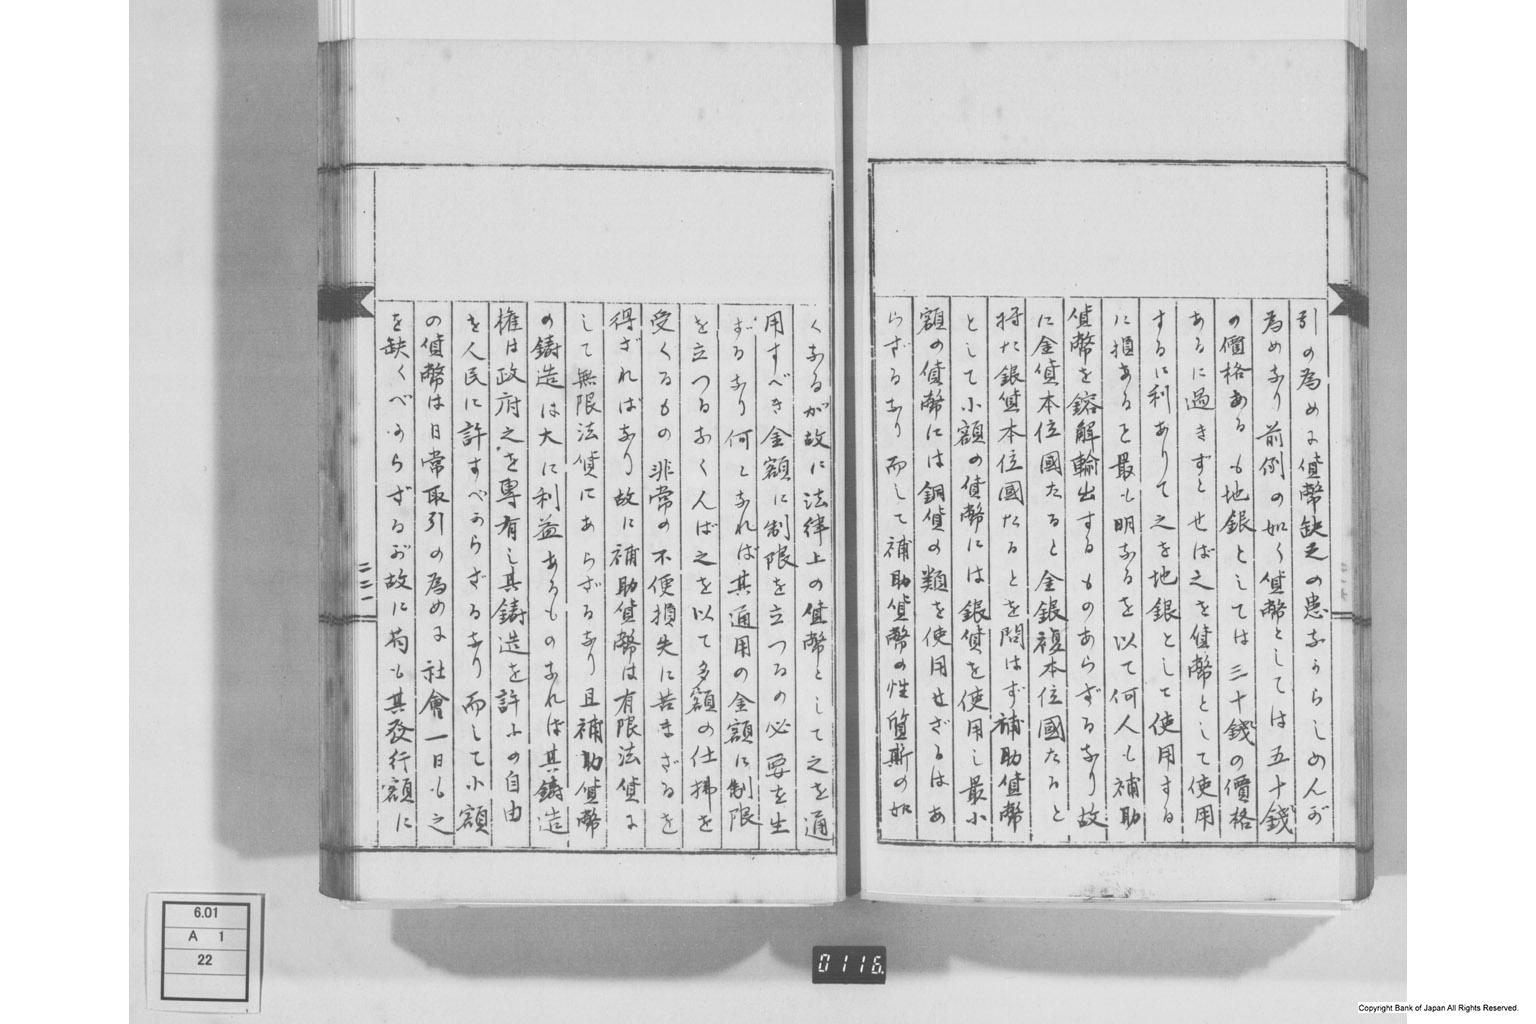 引の為めに貨幣缺乏の患なからしめんが
為めなり前例の如く貨幣としては五十錢
の價格あるも地銀としては三十錢の價格
あるに過きずとせば之を貨幣として使用
するに利ありて之を地銀として使用する
に損あると最も明なるを以て何人も補助
貨幣を鎔解輸出するものあらずるなり故
に金貨本位國たると金銀複本位國たると
将た銀貨本位國たるとを問はず補助貨幣
として小額の貨幣には銀貨を使用し最小
額の貨幣には銅貨の類を使用せざるはあ
らざるなり而して補助貨幣の性質斯の如
くなるが故に法律上の貨幣として之を通
用すべき金額に制限を立つるの必要を生
ずるなり何となれば其通用の金額に制限
を立つるなくんば之を以て多額の仕拂を
受くるもの非常の不便損失に苦まざるを
得ざればなり故に補助貨幣は有限法貨に
して無限法貨にあらざるなり且補助貨幣
の鋳造は大に利益あるものなれば其鋳造
権は政府之を専有し其鋳造を許ふの自由
を人民に許すべからざるなり而して小額
の貨幣は日常取引の為めに社會一日も之
を缺くべからざるが故に苟も其発行額に
二二一
6.01
A 1
22
0116.
Copyright Bank of Japan All Rights Reserved.